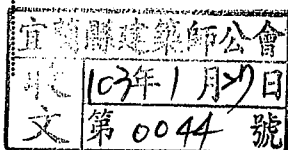 宜蘭縣建築師公會
收文
103年1月27日
第0044號